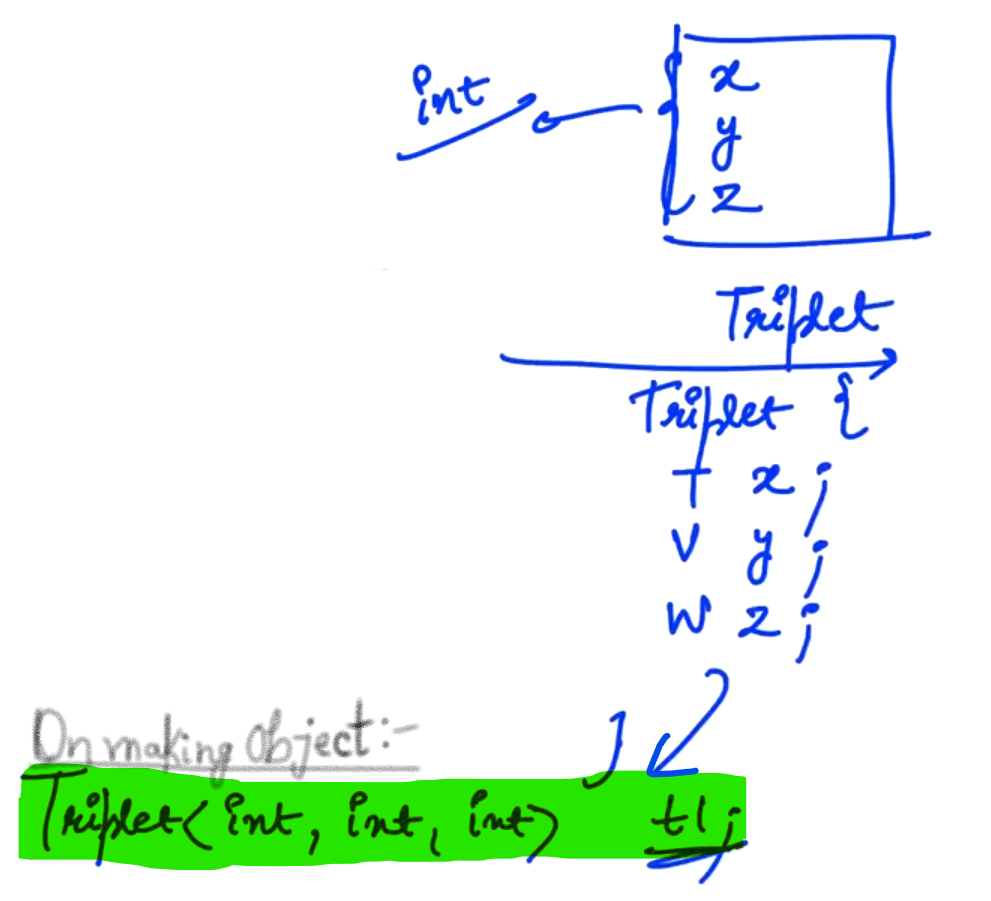 int
x
y
z
Triplet
Triplet {
T x ;
V y ;
W z ;
}
On making object:-
Triplet< int, int, int> t1;